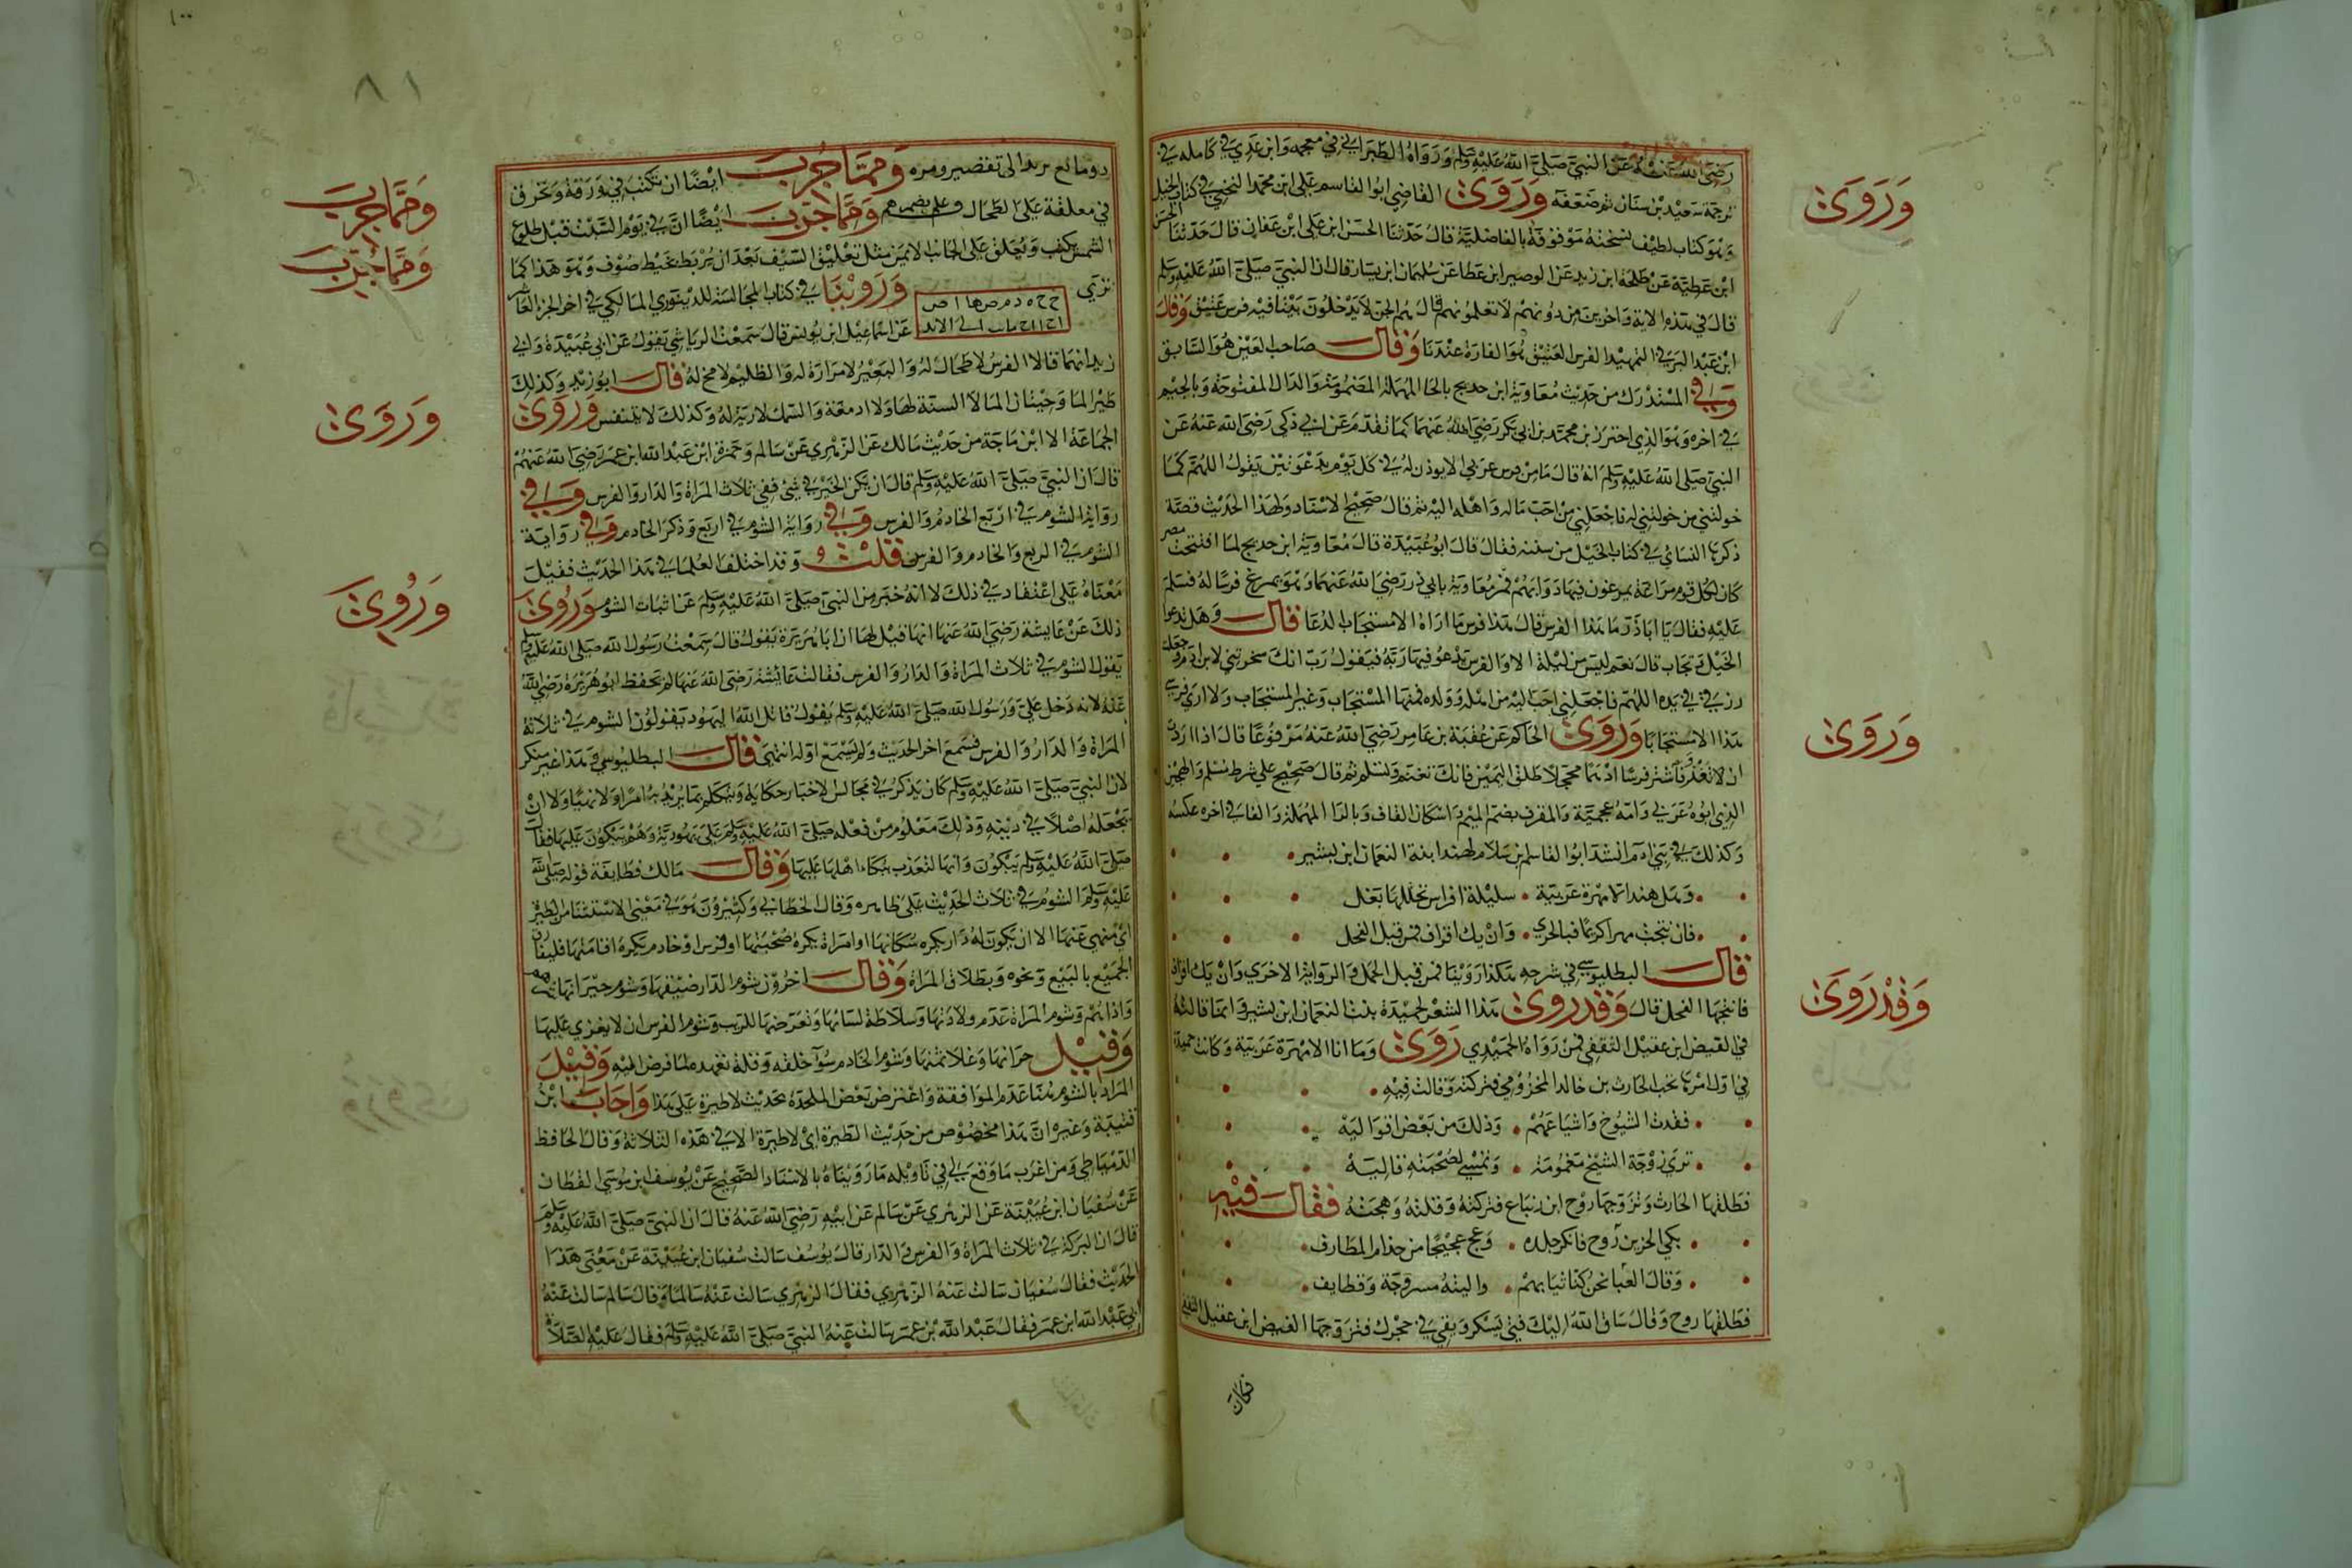 وَرَوَىٰ
رَضِيَ اللهُ عَنْهُ عَنِ النبيّ صَلّى اللهُ عَلَيْهِ وَسَلَّمَ وَرَوَاهُ الطَّبَرَاني في معجمه وَابن عَدِي في كَامله في
ترجمَة سَعِيْد بْن سِنَان ثم ضَعّفَه وَرَوَىٰ القَاضِي ابوُ القَاسم عَلى ابن محمّد النخعي في كتاب الخيل
وَهُوَ كتاب لطِيْف نسْختهُ مَوْقوفة بالفاضليَّة قالَ حَدّثنَا الحسَن ابن عَلى ابْن عَفان قالَ حَدّثنَا الحسَن
ابْن عَطيَّة عَنْ طَلحَة ابن زيد عَن الوصير ابن عَطا عَن سُليمان ابن يسَار قال ان النبيّ صَلّى اللهُ عَلَيْهِ وَسَلَّم
قالَ في هَذه الاية وَاخرين مِن دُونهمْ لا تعلمُونهم قالَ هُم الجنّ لا يَدْخلُونَ بَيْتا فيْه فرسٌ عَتيْق وَقَالَ
ابْن عَبْد البَر في التمهيْد الفَرس العَتيْق هُوَ الفارهُ عِنْدَنَا وَقَالَ صَاحب العَيْن هُوَ السَّابق
وَفِي المسْتدْرَك من حَديْث مُعَاويَة ابن حديج بالحَا المهملة المضمُومَة وَالدَال المفتوحَة وَبالجيْم
في اخره وَهُوَ الذِي احترَق بن محمّد بن ابي بَكر رَضِيَ اللهُ عَنهمَا كمَا تقدّمَ عَن ابي ذر رَضِيَ اللهُ عَنْهُ عَن
النبيّ صَلّى اللهُ عَلَيْهِ وَسَلَّم انهُ قالَ مَا مِنْ فرس عرَبي الا يوذن لهُ في كل يَوْم بدَعْوَتيْن يَقولُ اللهُمّ كمَا
خولتني من خولتني لهُ فاجْعَلني مِنْ احَبّ مَاله وَاهْله اليْه ثم قالَ صَحِيْح الاسْنَاد وَلهذا الحَديْث قصَّة
ذكرهَا النسَائي في كتاب الخيْل من سننه فقالَ قالَ ابوُ عُبَيْدَة قالَ مُعَاويَة ابن حديج لما افتتحت مصر
كَان لكل قوم مرَاغَة يمرغون فيهَا دَوَابهمْ فمرّ مُعَاويَة بابي ذر رَضِيَ اللهُ عَنهُمَا وَهُوَ يمرغ فرسًا لهُ فسَلم
عَليْه فقَالَ يَا ابَا ذَرّ مَا هَذا الفرسْ قالَ هَذا فرس مَا ارَاهُ الا مستجَاب الدُعَا قَالَ وَهَل تدعوا
الخَيْل وتجَاب قالَ نعَم ليسَ من ليْلة الا وَالفرسْ يَدْعُو فيهَا رَبّهُ فيَقولُ رَبّ انكَ سخرتني لابن ادَم وَجعلت
رزقي في يَده اللهُمّ فاجْعَلني احَبّ اليْه من اهْله وَوَلده فمنهَا المسْتجَاب وَغيْر المستجَاب وَلا ارَى فرسي
هَذا الا مسْتجَابا وَرَوَىٰ الحَاكم عَن عُقبَة بن عَامر رَضِيَ اللهُ عَنهُ مَرْفوعًا قالَ اذا ارَدت
ان تغزو فاشْتر فرسًا ادْهمًا محجّلا طلق اليَميْن فانكَ تغنم وَتسْلم ثم قالَ صَحِيْح على شرط مسْلم وَالهجيْن
الذي ابوُهُ عَرَبي وَامّهُ عجميّة وَالمقرف بضمّ الميْم وَاسْكان القَاف وَبالرا المهْملة وَالفَا في اخره عكسُه
وَكذلكَ في بَني ادَم انشدَ ابوُ القاسم بن سَلام لهند ابنة النعمَان ابن بشير
وَهَل هند الا مهْرَة عَربيّة سليْلة افراس تحللهَا بَغل
فان نتجت مهرا كريمًا فبالحري وَانْ يك اقراف فمن قبل الفحل
قَالَ البطليوسي في شرحه هَكذا رَوَيْنَا فمن قبل الفحل وَالروَايَة الاخرَي وَانْ يك اقراف
فانتجهَا الفحل قالَ وَقَدْ رَوَىٰ هَذا الشعْر لحميْدَة بنت النعمَان ابن بشير وَانهَا قالتْهُ
في الفيض ابن عقيْل الثقفي فمنْ رَوَاهُ لحميْدي رَوَىٰ وَمَا انا الا مهْرَة عَربيّة وَكانت حميدَة
في اوّل امْرهَا تحت الحارث بن خالد المخزومي فتركته وَقالت فيْه
فقدت الشيُوخ وَاشيَاعَهُمْ وَذلكَ من بَعْض اقوَاليَهْ
ترَى زوْجَة الشيْخ مَغمُومَة وَتمْسي لصُحْبَته قاليَهْ
فطلقهَا الحَارث وَتزوّجهَا رَوْح ابن زنبَاع فتركتهُ وَقلتهُ وَهجته فَقَالَ فِيْهِ
بكي الخز من رَوْح وَانكر جلده وَعج عجيْجًا من جذام المطَارف
وَقالَ العَبَا نحنُ كنا ثيابهمْ وَاكسيَةٌ مسروجَة وَقطَايف
فطلقهَا روح وَقالَ سَاقَ اللهُ اليْك فتى يَسْكر وَيقي في حجرك فتزوّجهَا الفيض ابن عقيْل الثقفي
وَرَوَىٰ
وَقَدْ رَوَىٰ
فكانت
٨١
وَمِمَّا جُرِبَ
وَمِمَّا جُرِبَ
وَرَوَىٰ
وَرُوِيَ
وَمِمَّا جُرِبَ ايْضًا ان تكتبَ في وَرَقة وَتحرق
وَمِمَّا جُرِبَ ايْضًا انّ في يَوْم السَّبت قبْل طلوع
الشمْس يكتب وَيُعَلق عَلى الجَانب الايمَن مثل تعْليْق السَيْف بَعْدَ ان يُربَط بخيْط صُوْف وَهُوَ هَذا كمَا
ترَى وَرَوَيْنَا في كتاب المجَالسَة للديْنَوَري المَالكي في اخر الجزء العَاشر
عَن اسْمَاعيْل ابن يونس قالَ سَمعْت الريَاشي يَقولُ عَن ابي عُبَيْدَة وَابي
زيد انهمَا قالا الفرسُ لا طحَال لهُ وَالبَعيْرُ لا مرَارَة لهُ وَالظليْم لا مخ لهُ قَالَ ابوُ زيْد وَكذلكَ
طيْر المَا وَحيْتان المَا لا السنة لهَا وَلا ادمغة وَالسّمك لا رئة لهُ وَكذلكَ لا يتنفس وَرَوَىٰ
الجمَاعَة الا ابْن مَاجَة من حَديْث مَالك عَن الزهْري عَنْ سَالم وَحمزة ابْن عَبْد الله ابن عمَر رَضِيَ اللهُ عَنهُمْ
قالَ ان النبيّ صَلّى اللهُ عَلَيْهِ وَسَلَّم قالَ ان يكن الخيْر في شيْ ففي ثلاث المرَاة وَالدَار وَالفرس وَفِي
روَاية الشوم في ارْبع الخَادم وَالفرس وَفِي روَاية الشوم في اربَع وَذكرَ الخادم وَفِي روَايَة
الشوم في الربع وَالخادم وَالفرس قُلْتُ وَقد اختلفَ العُلمَا في هَذا الحَديْث فقيْلَ
مَعْنَاهُ عَلى اعْتقَاد في ذلكَ لا انهُ خبَر من النبيّ صَلّى اللهُ عَلَيْهِ وَسَلَّم عَن اثبَات الشوم وَرُوِيَ
ذلكَ عَنْ عَايشة رَضِيَ اللهُ عَنهَا انهَا قيْل لهَا ان ابَا هُرَيْرَة يَقولُ قالَ سَمعْتُ رَسُولَ الله صَلّى اللهُ عَلَيْهِ وَسَلَّم
يَقول الشوم في ثلاث المرَاة وَالدَارُ وَالفرس فقَالت عَائشَة رَضِيَ اللهُ عَنهَا لم يَحفظ ابوُ هُرَيْرَة رَضِيَ اللهُ
عَنهُ لانه دَخل عَليّ وَرَسُول الله صَلّى اللهُ عَلَيْهِ وَسَلَّم يَقولُ قاتل اللهُ اليَهُود يَقولوْن الشوم في ثلاثة
المرَاة وَالدَارُ وَالفرس فسَمعَ اخر الحَديْث وَلم يَسْمَع اوّلهُ انتهَى قَالَ البطليوسي وَهَذا غيْر منكر
لانّ النبيّ صَلّى اللهُ عَلَيْهِ وَسَلَّم كَان يَذكرُ في مجَالس الاخبَار حكايَة وَيتكلم بمَا يُريْد به امرًا وَلا نهيًا وَلا انْ
يَجْعَلهُ اصْلا في ديْنه وَذلكَ مَعْلوم منْ فعْله صَلّى اللهُ عَلَيْهِ وَسَلَّم عَلى يَهُوديّة وَهُمْ يَبْكونَ عَليهَا فقَالَ
صَلّى اللهُ عَلَيْهِ وَسَلَّم يَبْكونَ وَانهَا لتعَذب ببُكاء اهْلهَا عَليهَا وَقَالَ مَالك فطَايفة قوله صَلّى اللهُ
عَلَيْهِ وَسَلَّم الشوْمُ في ثلاث الحَديْث عَلى ظَاهره وَقالَ الخطابي وَكثيْرُونَ هُوَ في مَعْنى الاسْتثنَا من الطيَرَة
ايْ منهي عَنهَا الا ان يَكونَ لهُ دَار يكره سُكانهَا او امرَاة يكرهُ صُحْبَتهَا او فرس او خادم يَكرهُ اقامتهَا فليُفَارق
الجَميْع بالبَيْع وَنحوه وَبطلاق المرَاة وَقَالَ اخرُوْن شوْم الدَار ضيْقهَا وَشوم جيْرَانهَا
وَاذاهُمْ وَشوم المرَاة عَدَم ولادَتهَا وَسَلاطة لسَانهَا وَتعَرّضهَا للرّيب وَشوم الفرس ان لا يغزي عَليهَا
وَقِيْلَ حرَانهَا وَغلا ثمنهَا وَشوم الخادم سُوْء خلقه وَقلة تعَهده لمَا فرض اليْه وَقِيْلَ
المرَاد بالشوم هُنَا عَدَم الموَافقة وَاعْترض بَعْض الملحدَة بحَديْث لا طيرَة عَلى هَذا وَاَجَابَ ابْنُ
قتيْبَة وَغيره انّ هَذا مخصُوْص من حَديْث الطيَرَة ايْ لا طيَرَة الا في هَذه الثلاثة وَقالَ الحَافظ
الدّميَاطي وَمن اغرَب مَا وَقعَ لي في تاويْله مَا رَوَيْنَاهُ بالاسْنَاد الصَّحيْح عَنْ يُوسف ابن مُوسَى القطَان
عَنْ سُفيَان ابن عُيَيْنَة عَن الزهْري عَنْ سَالم عَن ابيْه رَضِيَ اللهُ عَنهُ قالَ ان النبيّ صَلّى اللهُ عَلَيْهِ وَسَلَّمَ
قالَ ان البركة في ثلاث المرَاة وَالفرس وَالدَار قالَ يُوسُف سَالت سُفيَان ابن عُيَيْنَة عَنْ مَعْنى هَذا
الحَديْث فقَالَ سُفيَان سَالت عَنهُ الزّهْري فقَالَ الزهْري سَالت عَنْهُ سَالمًا وَقالَ سَالم سَالت عَنْهُ
ابي عَبْد الله ابن عمَر فقَالَ عَبْد الله بْن عمَر سَالت عَنهُ النبيّ صَلّى اللهُ عَلَيْهِ وَسَلَّم فقَالَ عَلَيْهِ الصَّلاة